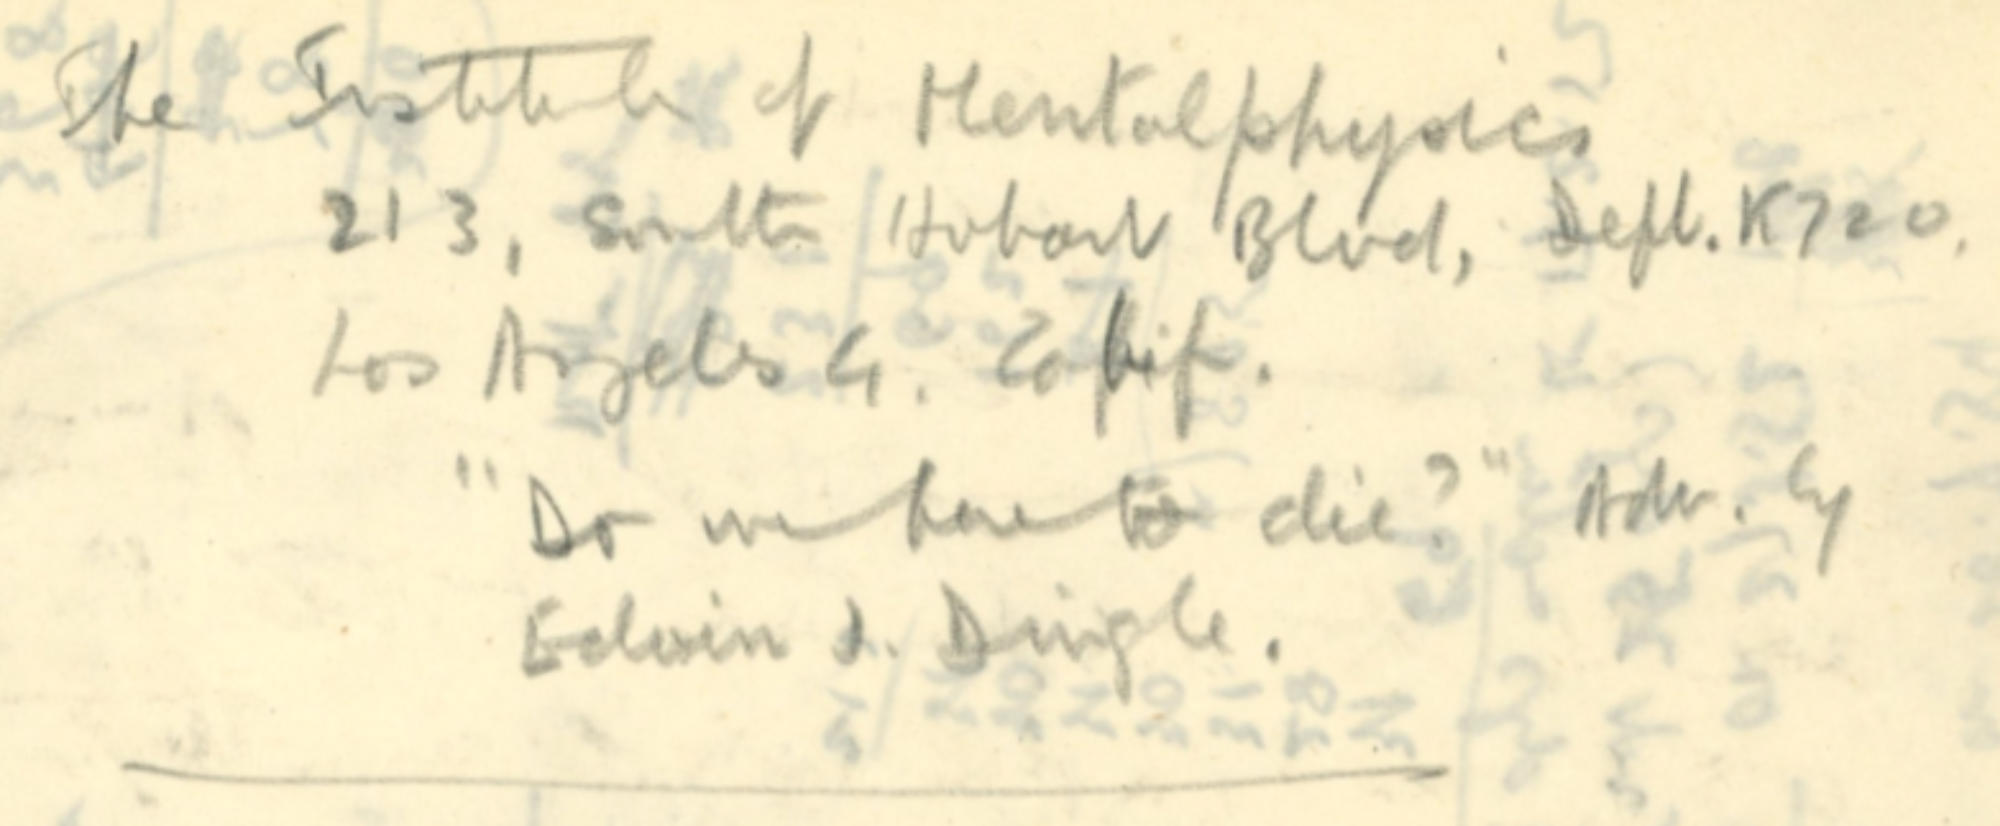 The Institute of Mentalphysics
213, South Hobart Blvd, Dept. K720,
Los Angeles 4. Calif.
"Do we have to die?" Adv. by
Edwin J. Dingle.